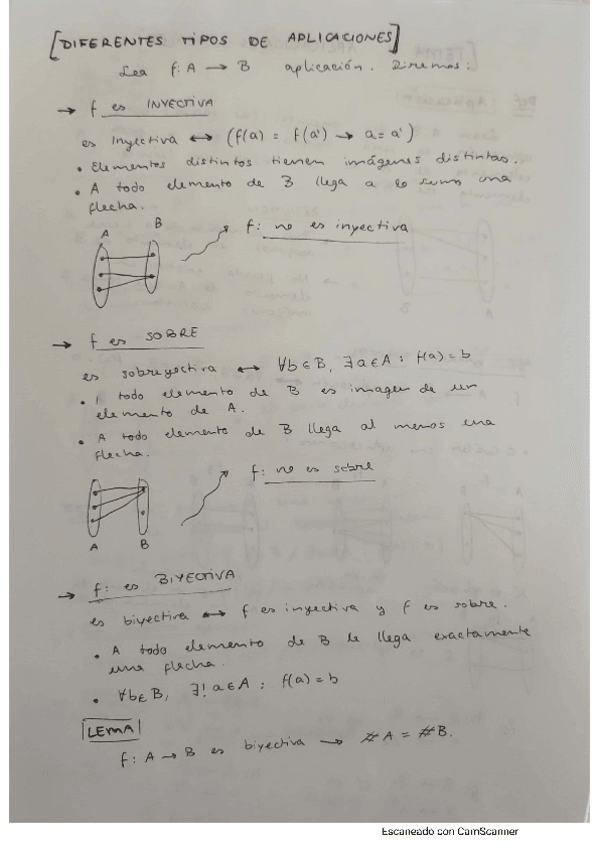 [DIFERENTES TIPOS DE APLICACIONES]
Sea f: A → B aplicación. Diremos:
→ f es INYECTIVA
es inyectiva ↔ (f(a) = f(a') → a = a')
• Elementos distintos tienen imágenes distintas.
• A todo elemento de B llega a lo sumo una
flecha.
A B
f: no es inyectiva
→ f es SOBRE
es sobreyectiva ↔ ∀b ∈ B, ∃ a ∈ A : f(a) = b
• todo elemento de B es imagen de un
elemento de A.
• A todo elemento de B llega al menos una
flecha.
f: no es sobre
A B
→ f: es BIYECTIVA
es biyectiva ↔ f es inyectiva y f es sobre.
• A todo elemento de B le llega exactamente
una flecha.
• ∀b ∈ B, ∃! a ∈ A : f(a) = b
LEMA
f: A → B es biyectiva → #A = #B.
Escaneado con CamScanner